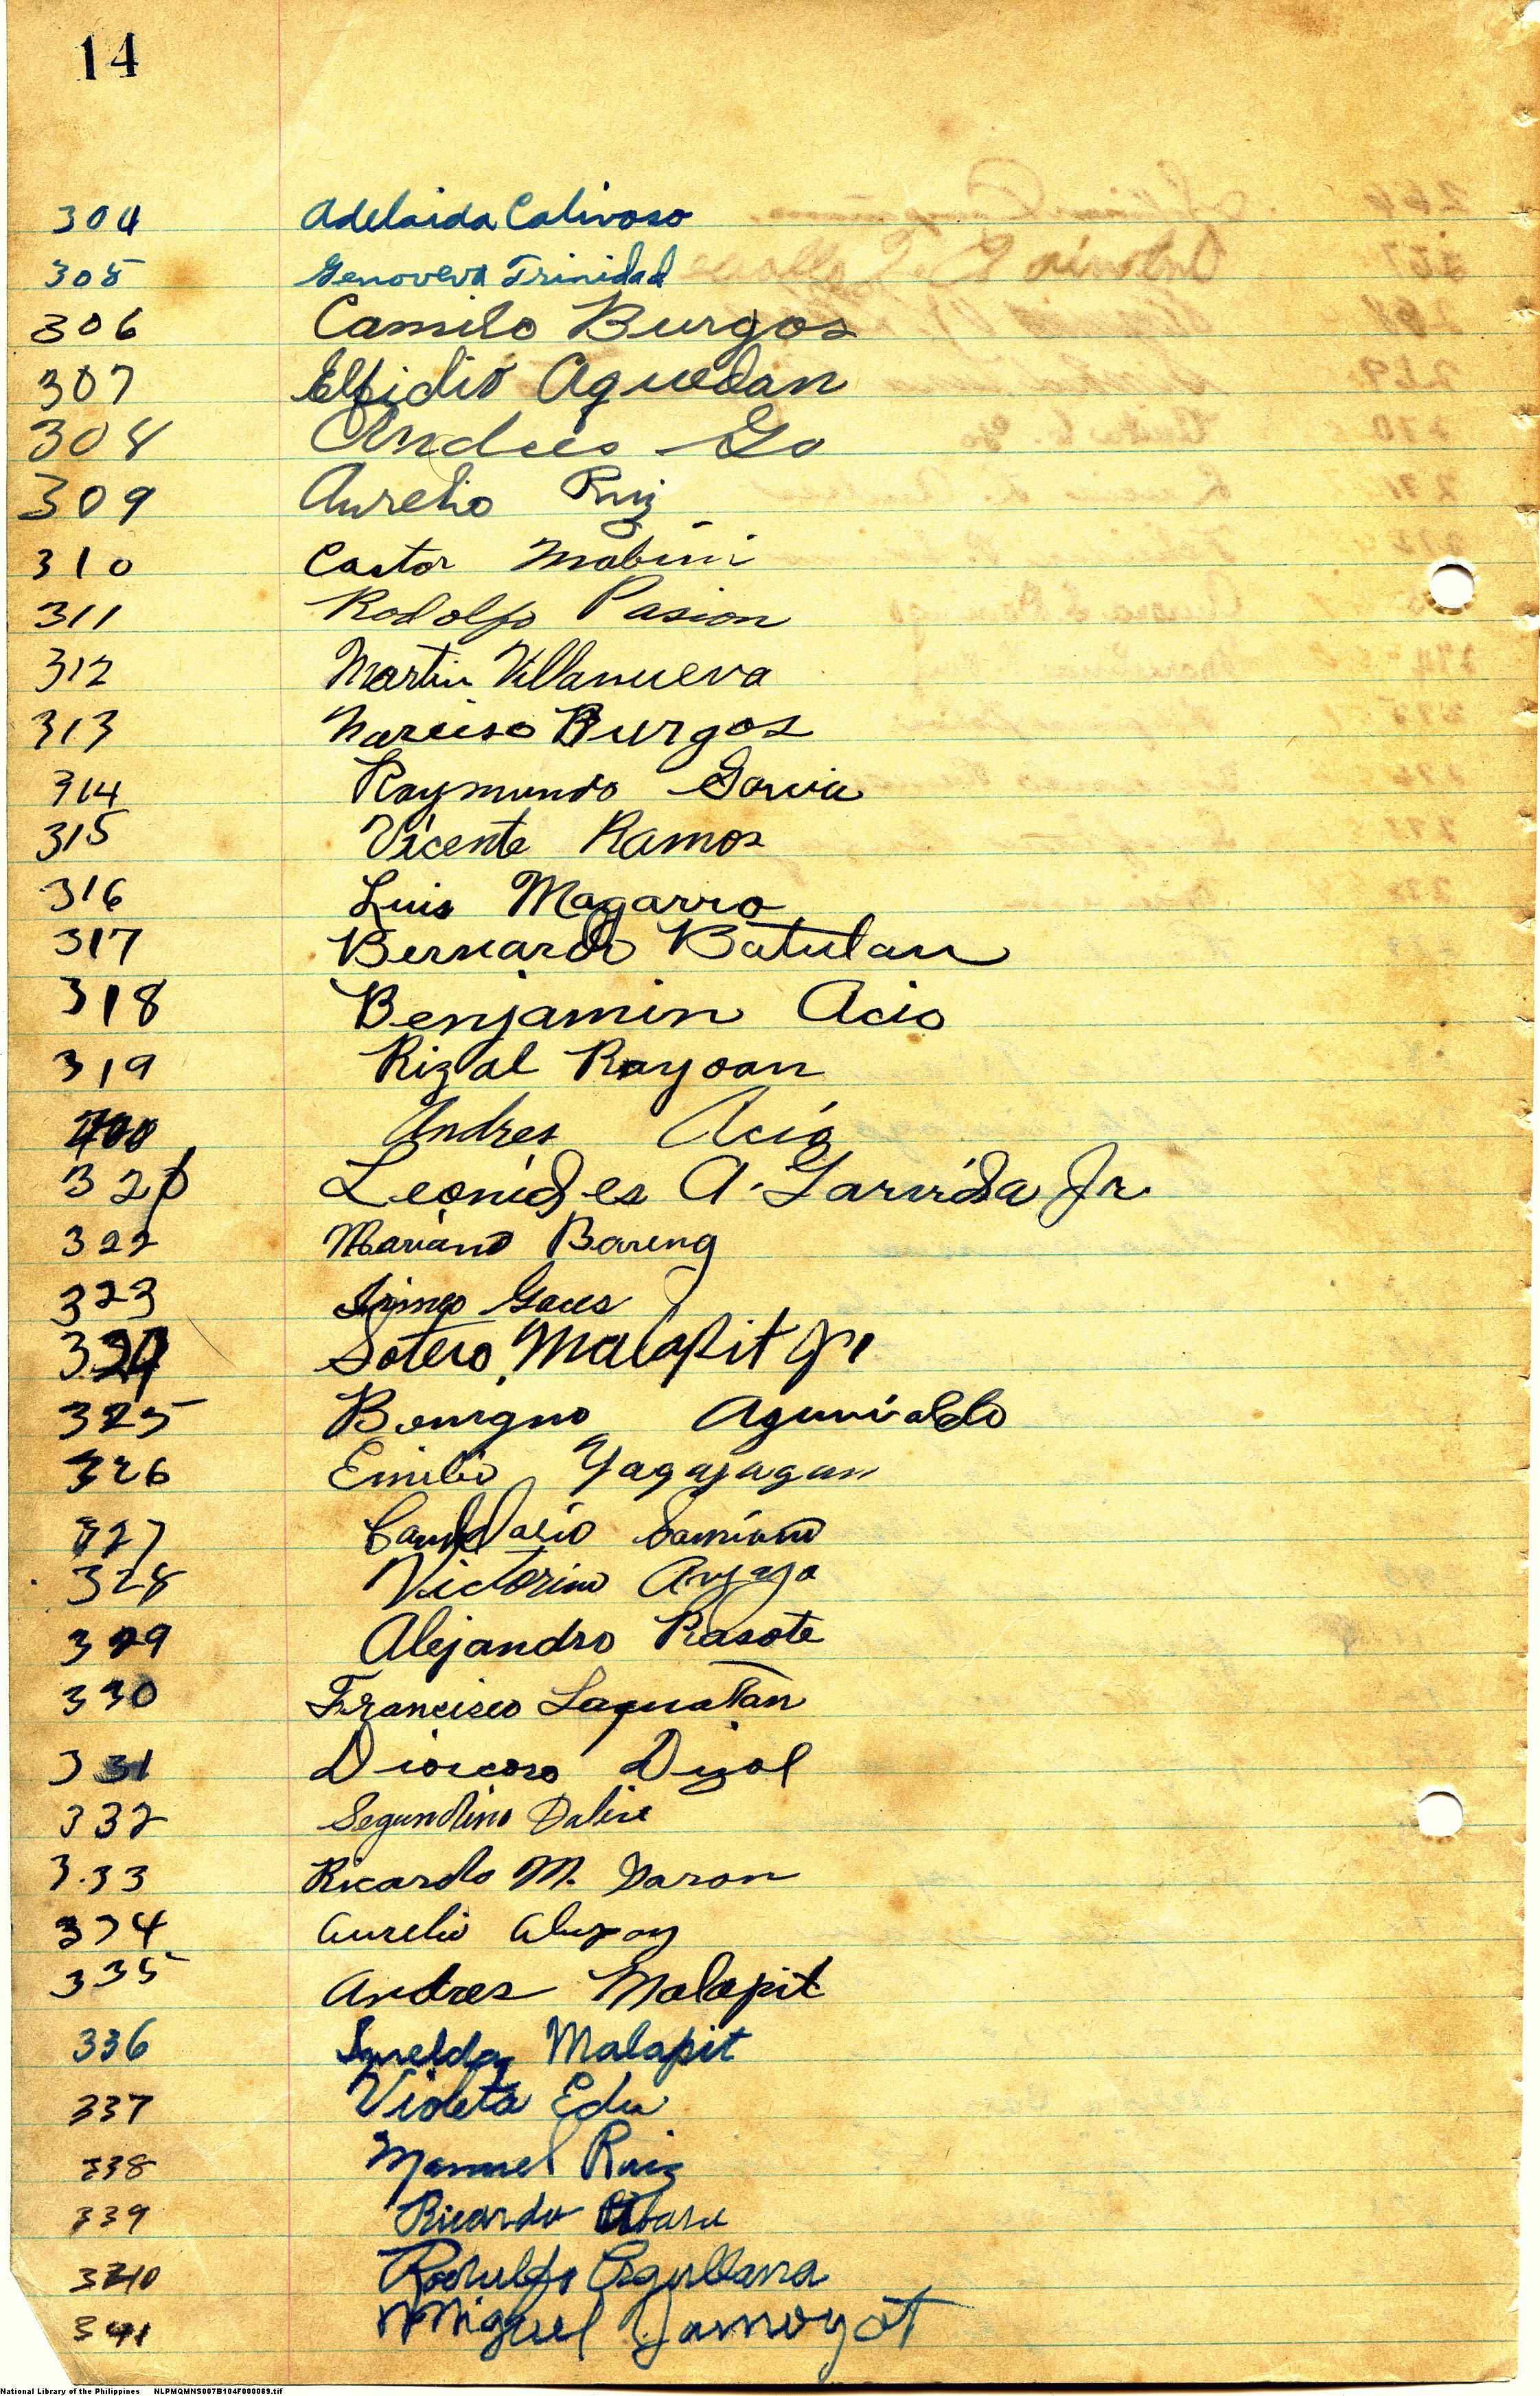 14
304 Adelaida Calivoso
305 Genoveva Trinidad
306 Camilo Burgos
307 Elfidio Aguedan
308 Andres Go
309 Aurelio Ruiz
310 Castor Mabini
311 Rodolfo Pasion
312 Martin Villanueva
313 Narciso Burgos
314 Raymundo Garcia
315 Vicente Ramos
316 Luis Magarro
317 Bernardo Batulan
318 Benjamin Acio
319 Rizal Rayoan
400 Andres Acia
321 Leonides A. Larida Jr.
322 Mariano Bareng
323 Gaces
324 Sotero Malapit Jr
325 Benigno
326 Emilio Yagayagan
327 Candelario Damiano
328 Victorino
329 Alejandro Rasote
330 Francisco Laguatan
331 Dioscoro
332 Segundino
333 Ricardo M. Daron
334 Aurelio
335 Andres Malapit
336 Imelda Malapit
337 Violeta Edu
338 Manuel Ruiz
339 Ricardo
340 Rodulfo Orgullana
341 Miguel Yamoyot
National Library of the Philippines NLPMQMNS007B104F000089.tif